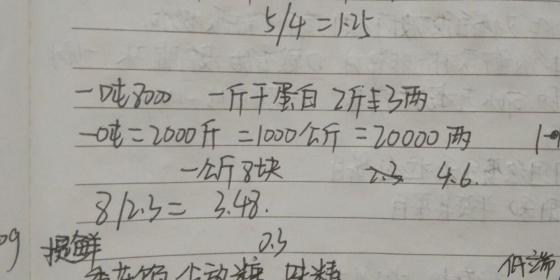 5/4 = 1.25
一吨8000 一斤干蛋白 2斤与3两
一吨 = 2000斤 = 1000公斤 = 20000两
一公斤8块 2.3 4.6.
8/2.3 = 3.48.
09 提鲜 0.3
味精 低端